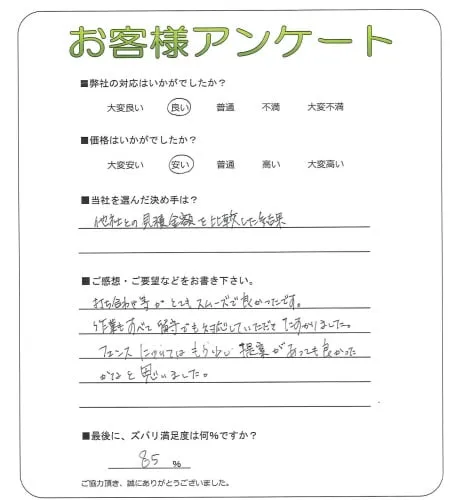 お客様アンケート
■弊社の対応はいかがでしたか？
大変良い 良い 普通 不満 大変不満
■価格はいかがでしたか？
大変安い 安い 普通 高い 大変高い
■当社を選んだ決め手は？
他社との見積金額を比較した結果
■ご感想・ご要望などをお書き下さい。
打ち合わせ等がとてもスムーズで良かったです。
作業もすべて留守でも対応していただてたすかりました。
フェンスについてはもう少し提案があっても良かった
かなと思いました。
■最後に、ズバリ満足度は何％ですか？
85 %
ご協力頂き、誠にありがとうございました。